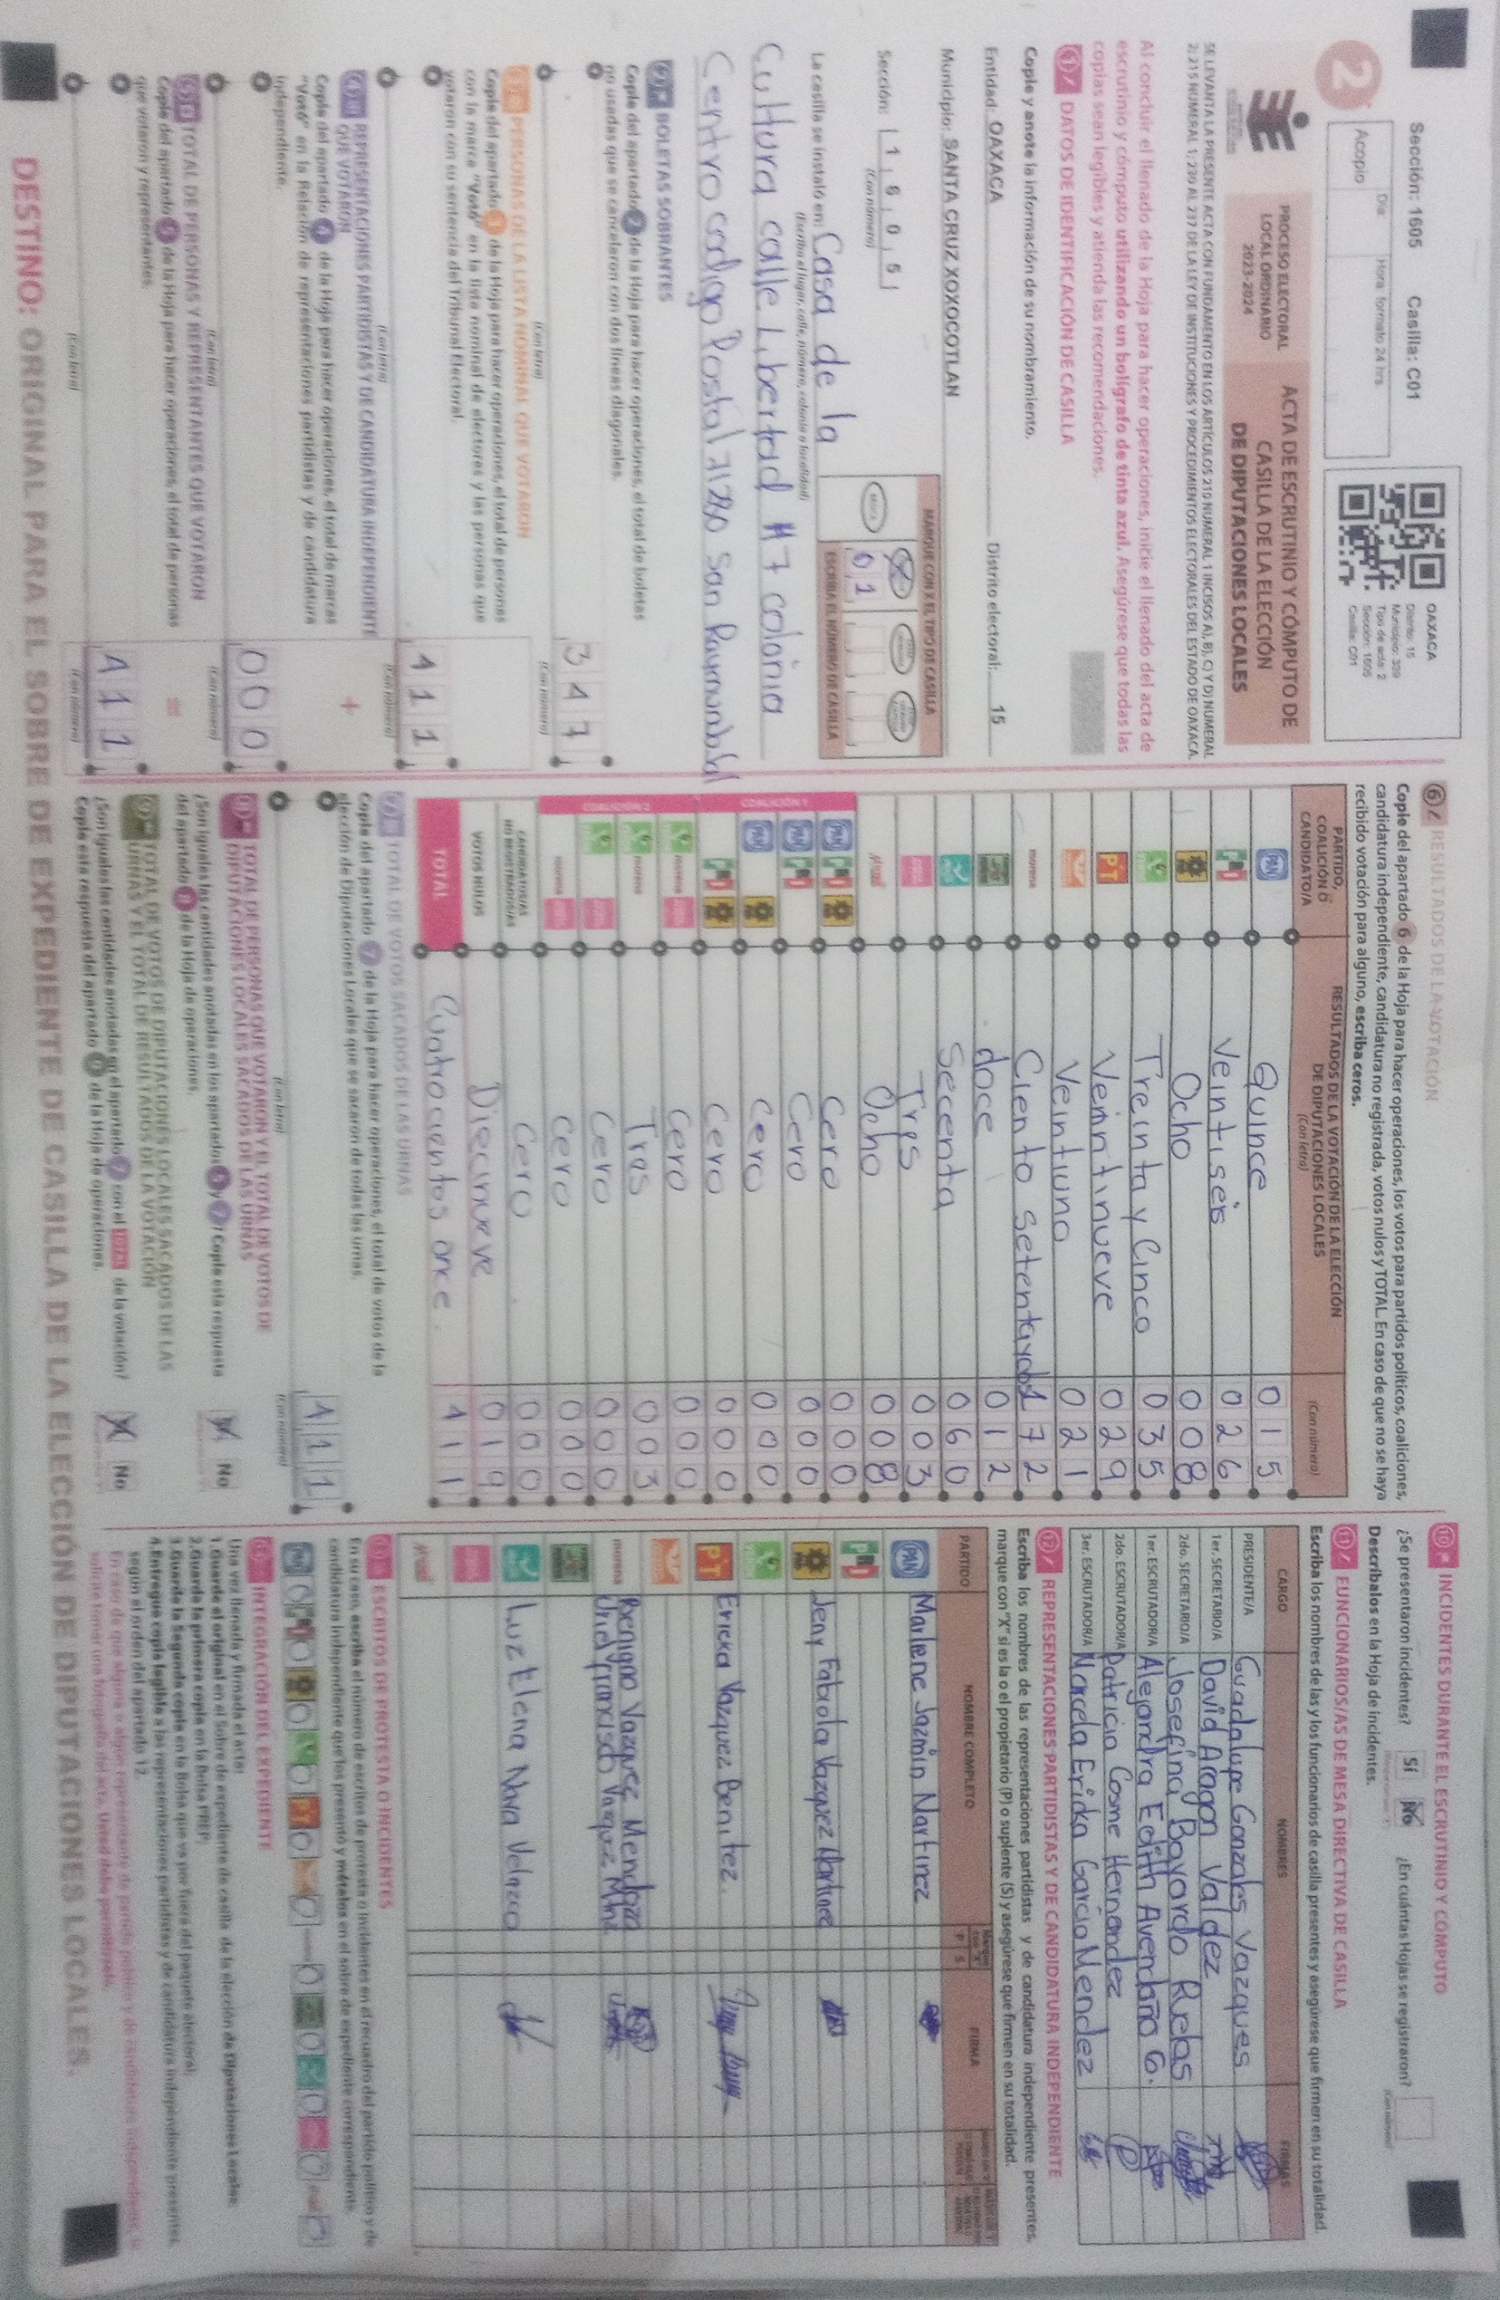 Sección: 1605 Casilla: C01
2
Día Hora formato 24 hrs
Acopio
OAXACA
Distrito: 15
Municipio: 339
Tipo de acta: 2
Sección: 1605
Casilla: C01
PROCESO ELECTORAL
LOCAL ORDINARIO
2023-2024
ACTA DE ESCRUTINIO Y CÓMPUTO DE
CASILLA DE LA ELECCIÓN
DE DIPUTACIONES LOCALES
SE LEVANTA LA PRESENTE ACTA CON FUNDAMENTO EN LOS ARTÍCULOS 210 NUMERAL 1 INCISOS A), B), C) Y D) NUMERAL
2; 215 NUMERAL 1; 230 AL 237 DE LA LEY DE INSTITUCIONES Y PROCEDIMIENTOS ELECTORALES DEL ESTADO DE OAXACA.
Al concluir el llenado de la Hoja para hacer operaciones, inicie el llenado del acta de
escrutinio y cómputo utilizando un bolígrafo de tinta azul. Asegúrese que todas las
copias sean legibles y atienda las recomendaciones.
1 DATOS DE IDENTIFICACIÓN DE CASILLA
Copie y anote la información de su nombramiento.
Entidad: OAXACA Distrito electoral: 15
Municipio: SANTA CRUZ XOXOCOTLAN
Sección: 1 6 0 5
(Con número)
MARQUE CON X EL TIPO DE CASILLA
BÁSICA
ESCRIBA EL NÚMERO DE CASILLA
0 1
La casilla se instaló en: Casa de la
(Escriba el lugar, calle, número, colonia o localidad)
Cultura calle Libertad #7 colonia
Centro codigo Postal 71280 San Raymundo Jal
2 BOLETAS SOBRANTES
Copie del apartado 2 de la Hoja para hacer operaciones, el total de boletas
no usadas que se cancelaron con dos líneas diagonales.
(Con letra)
347
(Con número)
3 PERSONAS DE LA LISTA NOMINAL QUE VOTARON
Copie del apartado 3 de la Hoja para hacer operaciones, el total de personas
con la marca "Votó" en la lista nominal de electores y las personas que
votaron con su sentencia del Tribunal Electoral.
(Con letra)
411
(Con número)
+
4 REPRESENTACIONES PARTIDISTAS Y DE CANDIDATURA INDEPENDIENTE
QUE VOTARON
Copie del apartado 4 de la Hoja para hacer operaciones, el total de marcas
"Votó" en la Relación de representaciones partidistas y de candidatura
independiente.
(Con letra)
000
(Con número)
=
5 TOTAL DE PERSONAS Y REPRESENTANTES QUE VOTARON
Copie del apartado 5 de la Hoja para hacer operaciones, el total de personas
que votaron y representantes.
(Con letra)
411
(Con número)
6 RESULTADOS DE LA VOTACIÓN
Copie del apartado 6 de la Hoja para hacer operaciones, los votos para partidos políticos, coaliciones,
candidatura independiente, candidatura no registrada, votos nulos y TOTAL. En caso de que no se haya
recibido votación para alguno, escriba ceros.
PARTIDO,
COALICIÓN O
CANDIDATO/A
RESULTADOS DE LA VOTACIÓN DE LA ELECCIÓN
DE DIPUTACIONES LOCALES
(Con letra) (Con número)
PAN Quince 015
PRI Veintiseis 026
Ocho 008
VERDE Treinta y Cinco 035
PT Veintinueve 029
Veintiuno 021
morena Ciento setenta y dos 172
doce 012
Secenta 060
Tres 003
Ocho 008
COALICIÓN 1
PAN PRI Cero 000
PAN PRI Cero 000
PAN Cero 000
PRI Cero 000
COALICIÓN 2
VERDE morena Cero 000
VERDE morena Tres 003
VERDE Cero 000
morena Cero 000
CANDIDATOS/AS
NO REGISTRADOS/AS Cero 000
VOTOS NULOS Diecinueve 019
TOTAL Cuatrocientos once. 411
7 TOTAL DE VOTOS SACADOS DE LAS URNAS
Copie del apartado 7 de la Hoja para hacer operaciones, el total de votos de la
elección de Diputaciones Locales que se sacaron de todas las urnas.
(Con letra)
411
(Con número)
8 TOTAL DE PERSONAS QUE VOTARON Y EL TOTAL DE VOTOS DE
DIPUTACIONES LOCALES SACADOS DE LAS URNAS
¿Son iguales las cantidades anotadas en los apartados 5 y 7? Copie esta respuesta
del apartado 8 de la Hoja de operaciones.
No
9 TOTAL DE VOTOS DE DIPUTACIONES LOCALES SACADOS DE LAS
URNAS Y EL TOTAL DE RESULTADOS DE LA VOTACIÓN
¿Son iguales las cantidades anotadas en el apartado 7 con el TOTAL de la votación?
Copie esta respuesta del apartado 9 de la Hoja de operaciones.
No
10 INCIDENTES DURANTE EL ESCRUTINIO Y CÓMPUTO
¿Se presentaron incidentes? Sí No ¿En cuántas Hojas se registraron?
(Con número)
Descríbalos en la Hoja de incidentes.
11 FUNCIONARIOS/AS DE MESA DIRECTIVA DE CASILLA
Escriba los nombres de las y los funcionarios de casilla presentes y asegúrese que firmen en su totalidad.
CARGO NOMBRES FIRMAS
PRESIDENTE/A Guadalupe Gonzales Vazques
1er. SECRETARIO/A David Aragon Valdez
2do. SECRETARIO/A Josefina Bayardo Ruelas
1er. ESCRUTADOR/A Alejandra Edith Avendaño G.
2do. ESCRUTADOR/A Patricia Cosme Hernandez
3er. ESCRUTADOR/A Marcela Erika García Mendez
12 REPRESENTACIONES PARTIDISTAS Y DE CANDIDATURA INDEPENDIENTE
Escriba los nombres de las representaciones partidistas y de candidatura independiente presentes,
marque con "X" si es la o el propietario (P) o suplente (S) y asegúrese que firmen en su totalidad.
PARTIDO NOMBRE COMPLETO P S FIRMA
PAN Marlene Jazmin Martinez
PRI
Jeny Fabiola Vazquez Martinez
VERDE
PT Ericka Vazquez Benitez.
morena Benigno Vazquez Mendoza
Uriel francisco Vazquez Mtz.
Luz Elena Nava Velazco
13 ESCRITOS DE PROTESTA O INCIDENTES
En su caso, escriba el número de escritos de protesta o incidentes en el recuadro del partido político y de
candidatura independiente que los presentó y métalos en el sobre de expediente correspondiente.
14 INTEGRACIÓN DEL EXPEDIENTE
Una vez llenada y firmada el acta:
1. Guarde el original en el Sobre de expediente de casilla de la elección de Diputaciones Locales;
2. Guarde la primera copia en la Bolsa PREP;
3. Guarde la segunda copia en la Bolsa que va por fuera del paquete electoral;
4. Entregue copia legible a las representaciones partidistas y de candidatura independiente presentes,
según el orden del apartado 12.
DESTINO: ORIGINAL PARA EL SOBRE DE EXPEDIENTE DE CASILLA DE LA ELECCIÓN DE DIPUTACIONES LOCALES.